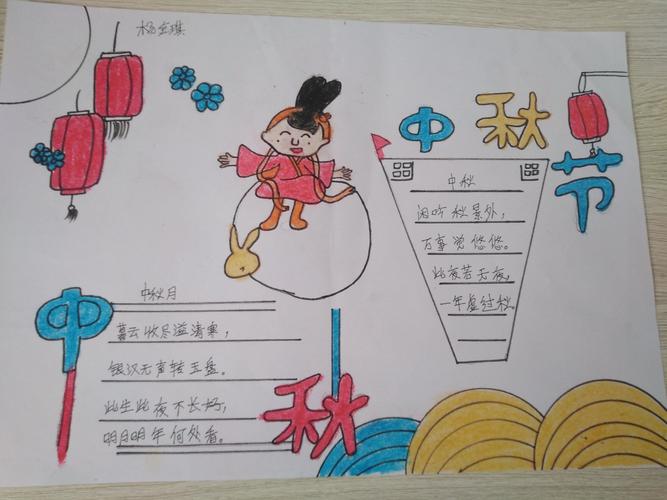 中秋节
中秋
闲吟秋景外,
万事觉悠悠。
此夜若无夜,
一年虚过秋。
中秋月
暮云收尽溢清寒,
银汉无声转玉盘。
此生此夜不长好,
明月明年何处看。
中秋